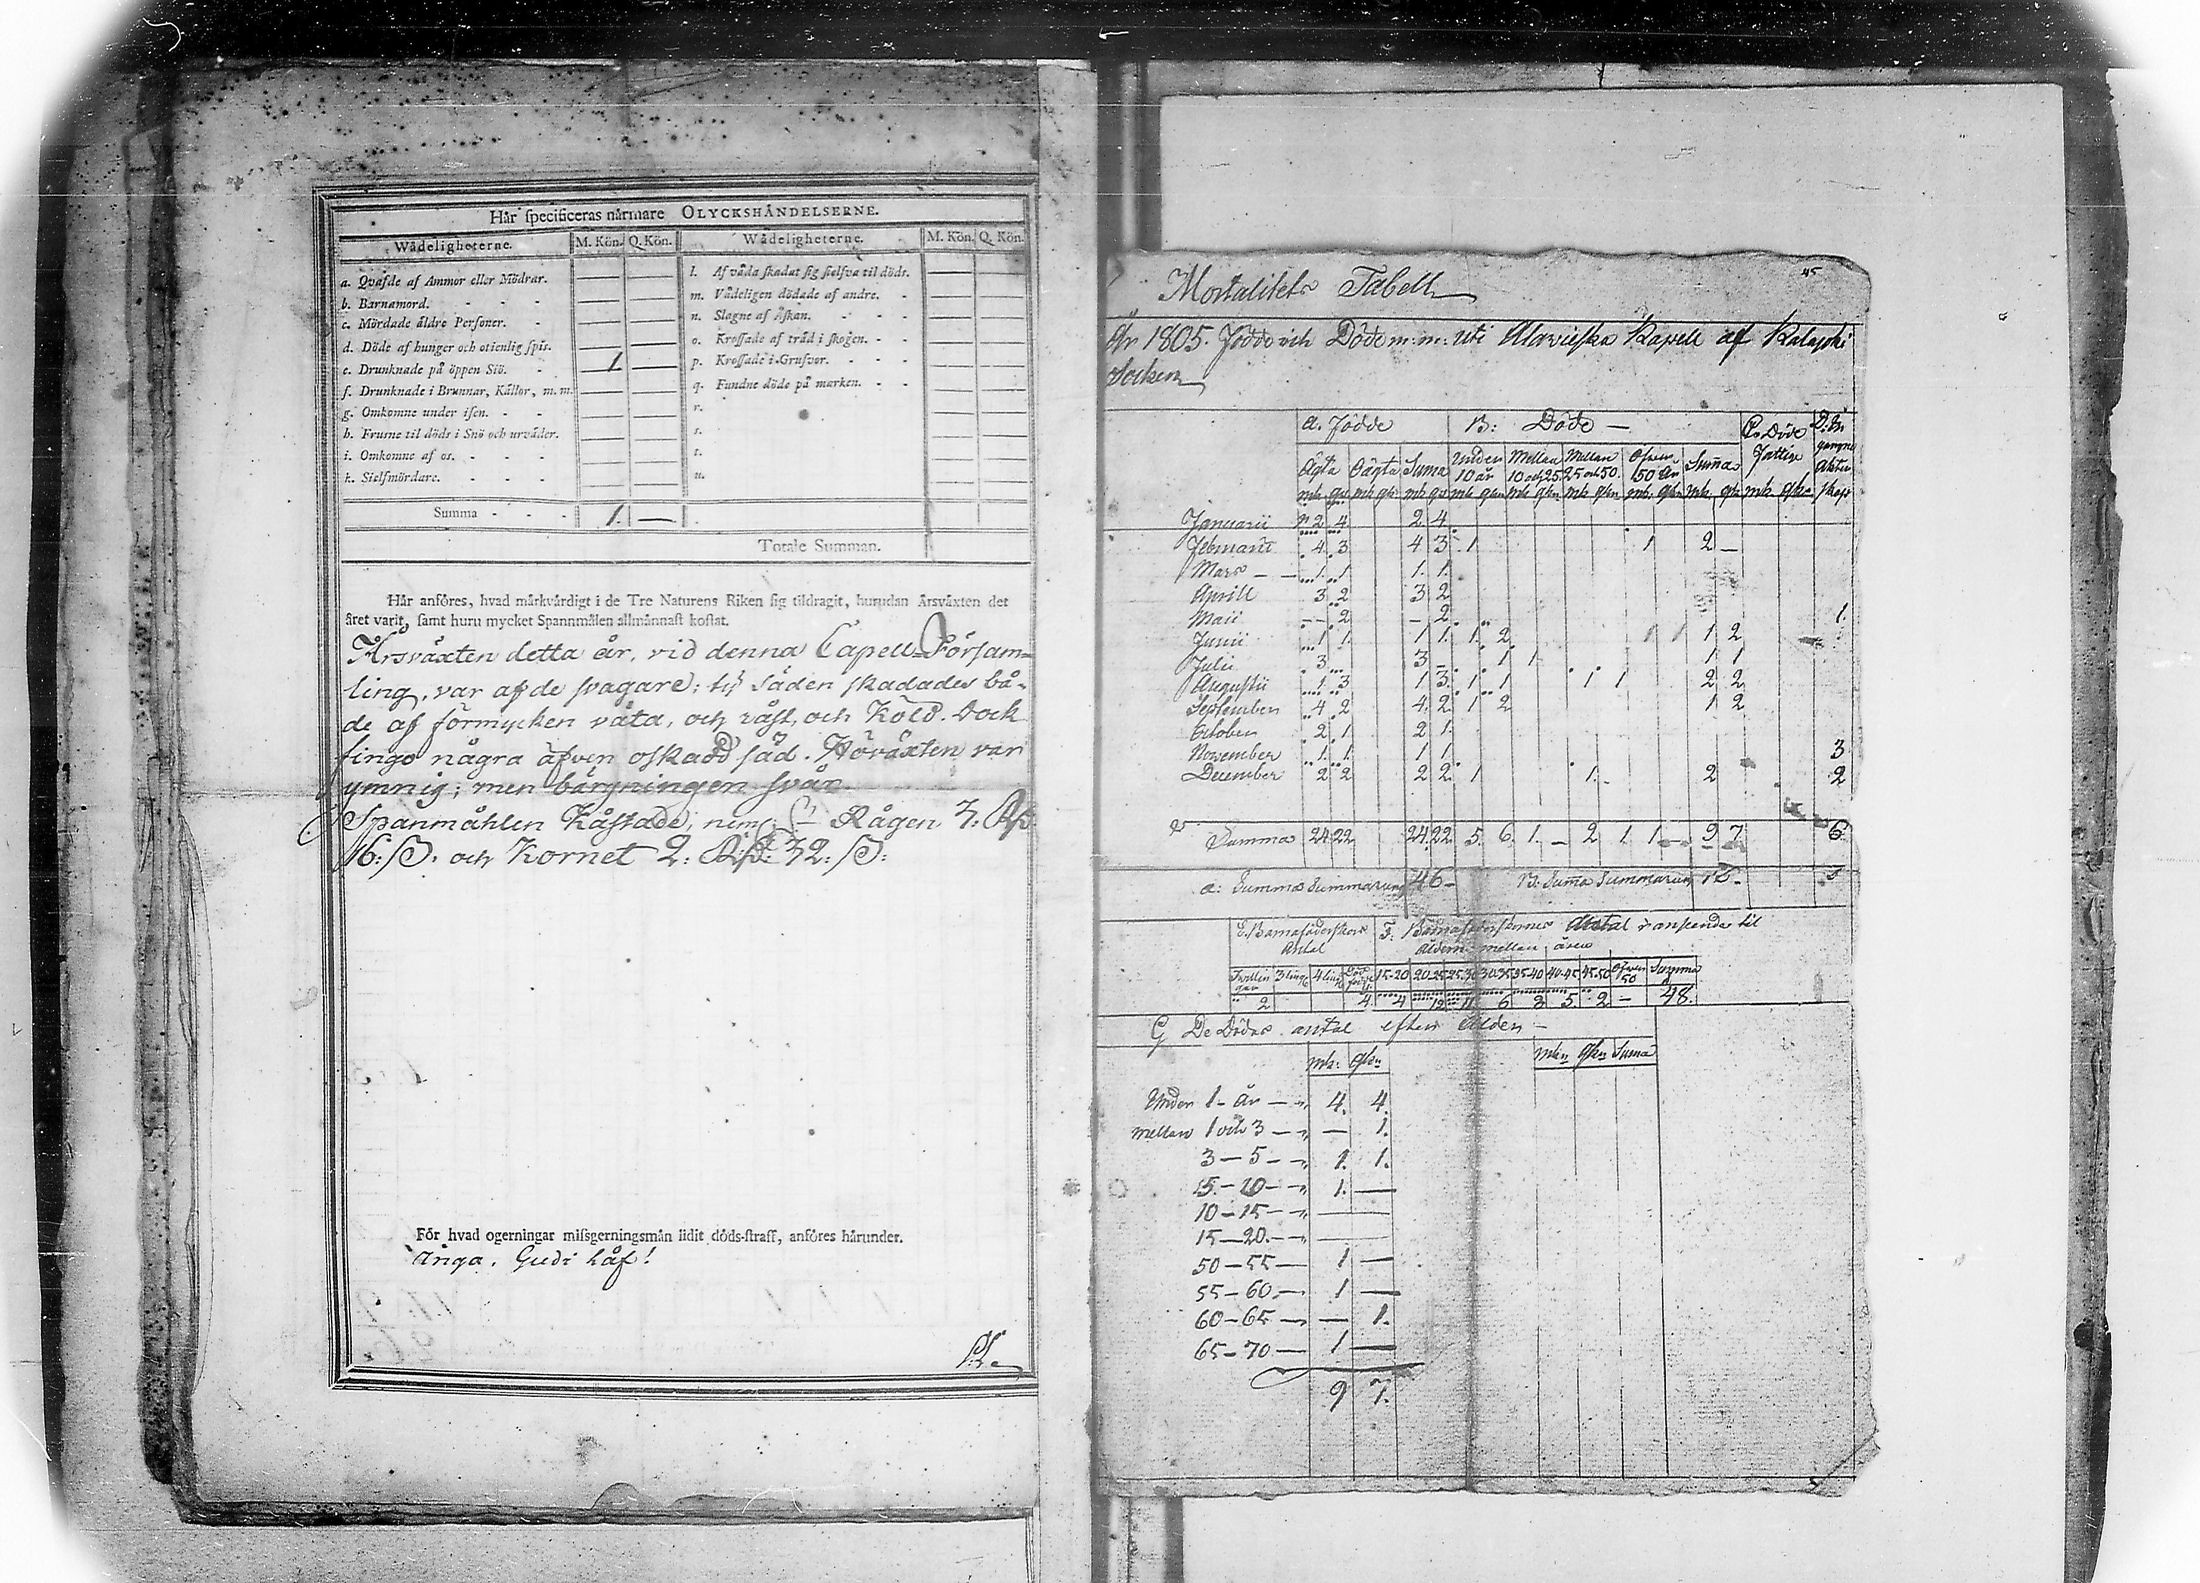 Här specificeras närmare OLYCKSHÄNDELSERNE.
Wådeligheterne. M. Kön. Q. Kön. Wådeligheterne. M. Kön. Q. Kön.
a. Qvafde af Ammor eller Mödrar. — —
b. Barnamord. - - - — —
c. Mördade äldre Personer. - — —
d. Döde af hunger och otienlig spis. — —
e. Drunknade på öppen Siö. - 1 —
f. Drunknade i Brunnar, Källor, m. m. — —
g. Omkomne under isen. - - — —
h. Frusne til döds i Snö och urväder. — —
i. Omkomne af os. - - - — —
k. Sielfmördare. - - - — —
Summa - - - - 1. —
l. Af våda skadat sig sielfva til döds. — —
m. Vådeligen dödade af andre. - — —
n. Slagne af Åskan. - - - — —
o. Krossade af träd i skogen. - - — —
p. Krossade i Grufvor. - - - — —
q. Fundne döde på marken. - - — —
r. — —
s. — —
t. — —
u. — —
Totale Summan.
Här anföres, hvad märkvärdigt i de Tre Naturens Riken sig tildragit, hurudan Årsväxten det
året varit, samt huru mycket Spannmålen allmännast kostat.
Årsväxten detta år, vid denna Capell-Församling
ling, var af de svagare; ty säden skadades bå-
de af förmycken väta, och råst, och Köld. Dock
fingo några äfven oskadd säd. Höväxten var
ymnig; men bärgningen svår.
Spanmåhlen Kåstade, neml. Rågen 3. R
16: ß. och Kornet 2: R 32: ß:
För hvad ogerningar missgerningsmän lidit döds-straff, anföres härunder.
Inga. Gudi låf!
45
Mortalitets Tabell
År 1805. Födde och Döde m: m: uti Alavieska Kapell af Kalajoki
Socken
a. Födde B: Döde — C. Döde D: In
Ägta Oägta Suma Under 10 år Mellan 10 och 25. Mellan 25 och 50. Ofvan 50 år Summa
Januarii 2 4 2 4
Februarii 4 3 4 3 1 1 2 —
Mars — — 1 1 1. 1.
Aprill 3 2 3 2
Maii — 2 — 2 1.
Junii 1 1. 1 1. 1. 2 1 1 1 2
Julii 3 3 — 1 1 1 1
Augustii 1 3 1 3 1 1 1 1 2 2
September 4 2 4 2 1 2 1 2
October 2 1 2 1.
November 1 1 1 1 3
December 2 2 2 2 1 1 2 2
Summa 24 22 24 22 5. 6. 1. — 2 1. 1 — 9 7 6
a: Summa Summarum 46 — B: Suma Summarum 16 —
E. Barnaföderskors Antal
F: Barnaföderskornes Antal i anseende til
åldern mellan åren
3 ling 4 ling 15-20 20-25 25-30 30-35 35-40 40-45 45-50 Ofvan 50 Summa
2 4. 4 12 11 6 8 5 2 — 48.
G De Dödas antal efter Ålder —
mk: qkn mkn qkn Suma
Under 1 - år — 4. 4.
mellan 1 och 3 — — 1.
3 — 5 — 1. 1.
5 — 10 — 1. —
10 — 15 — —
15 — 20. — —
50 — 55 — 1 —
55 — 60. — 1 —
60 — 65 — — 1.
65 — 70 — 1 —
9 7.